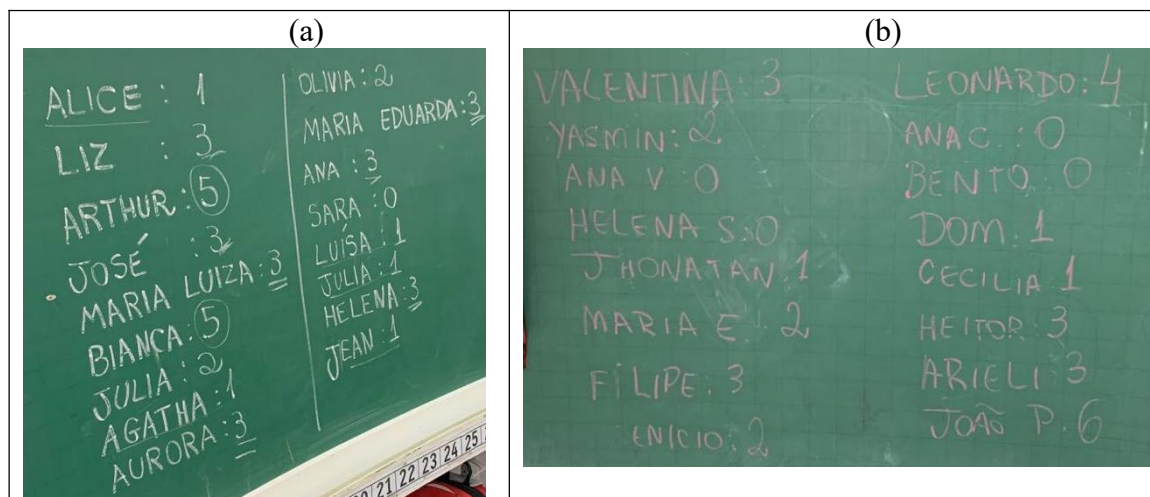 (a)
ALICE : 1
LIZ : 3
ARTHUR : 5
JOSÉ : 3
MARIA LUIZA : 3
BIANCA : 5
JULIA : 2
AGATHA : 1
AURORA : 3
OLIVIA : 2
MARIA EDUARDA : 3
ANA : 3
SARA : 0
LUÍSA : 1
JULIA : 1
HELENA : 3
JEAN : 1
21 22 23 24 25
(b)
VALENTINA : 3
YASMIN : 2
ANA V : 0
HELENA S : 0
JHONATAN : 1
MARIA E : 2
FILIPE : 3
ENÍCIO : 2
LEONARDO : 4
ANA C. : 0
BENTO : 0
DOM : 1
CECILIA : 1
HEITOR : 3
ARIELI : 3
JOÃO P. 6